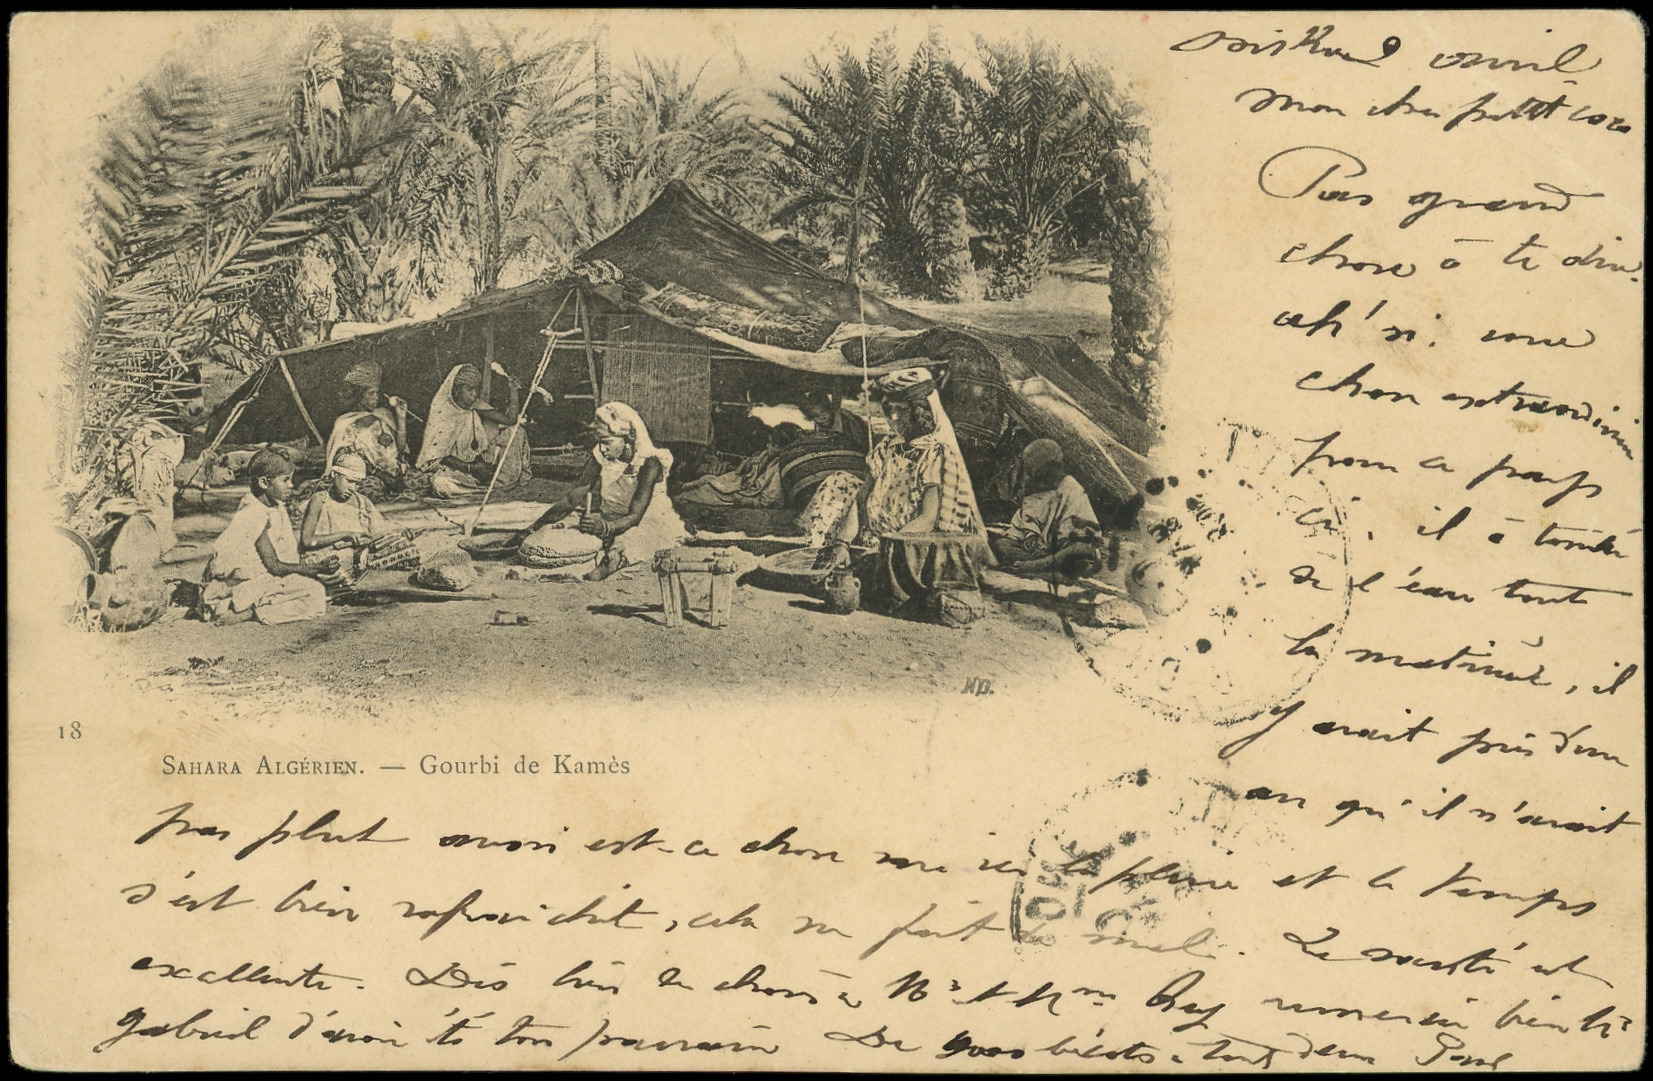 mon cher petit coco
Pas grand
chose à te dire.
ah! si. une
chose extraordin
pour ce pays
ci. il à tombé
de l'eau toute
la matinée, il
y avait près d'un
an qu'il n'avait
18
SAHARA ALGÉRIEN. — Gourbi de Kamès
ND.
pas plut aussi est-ce chose rare ici la pluie et le temps
s'est bien rafraichit, cela ne fait de mal. La santé est
excellente. Dis bien de choses à Mr et Mme remercie bien Mr
gabriel d'avoir été ton parrain De gros bécots à tout deux